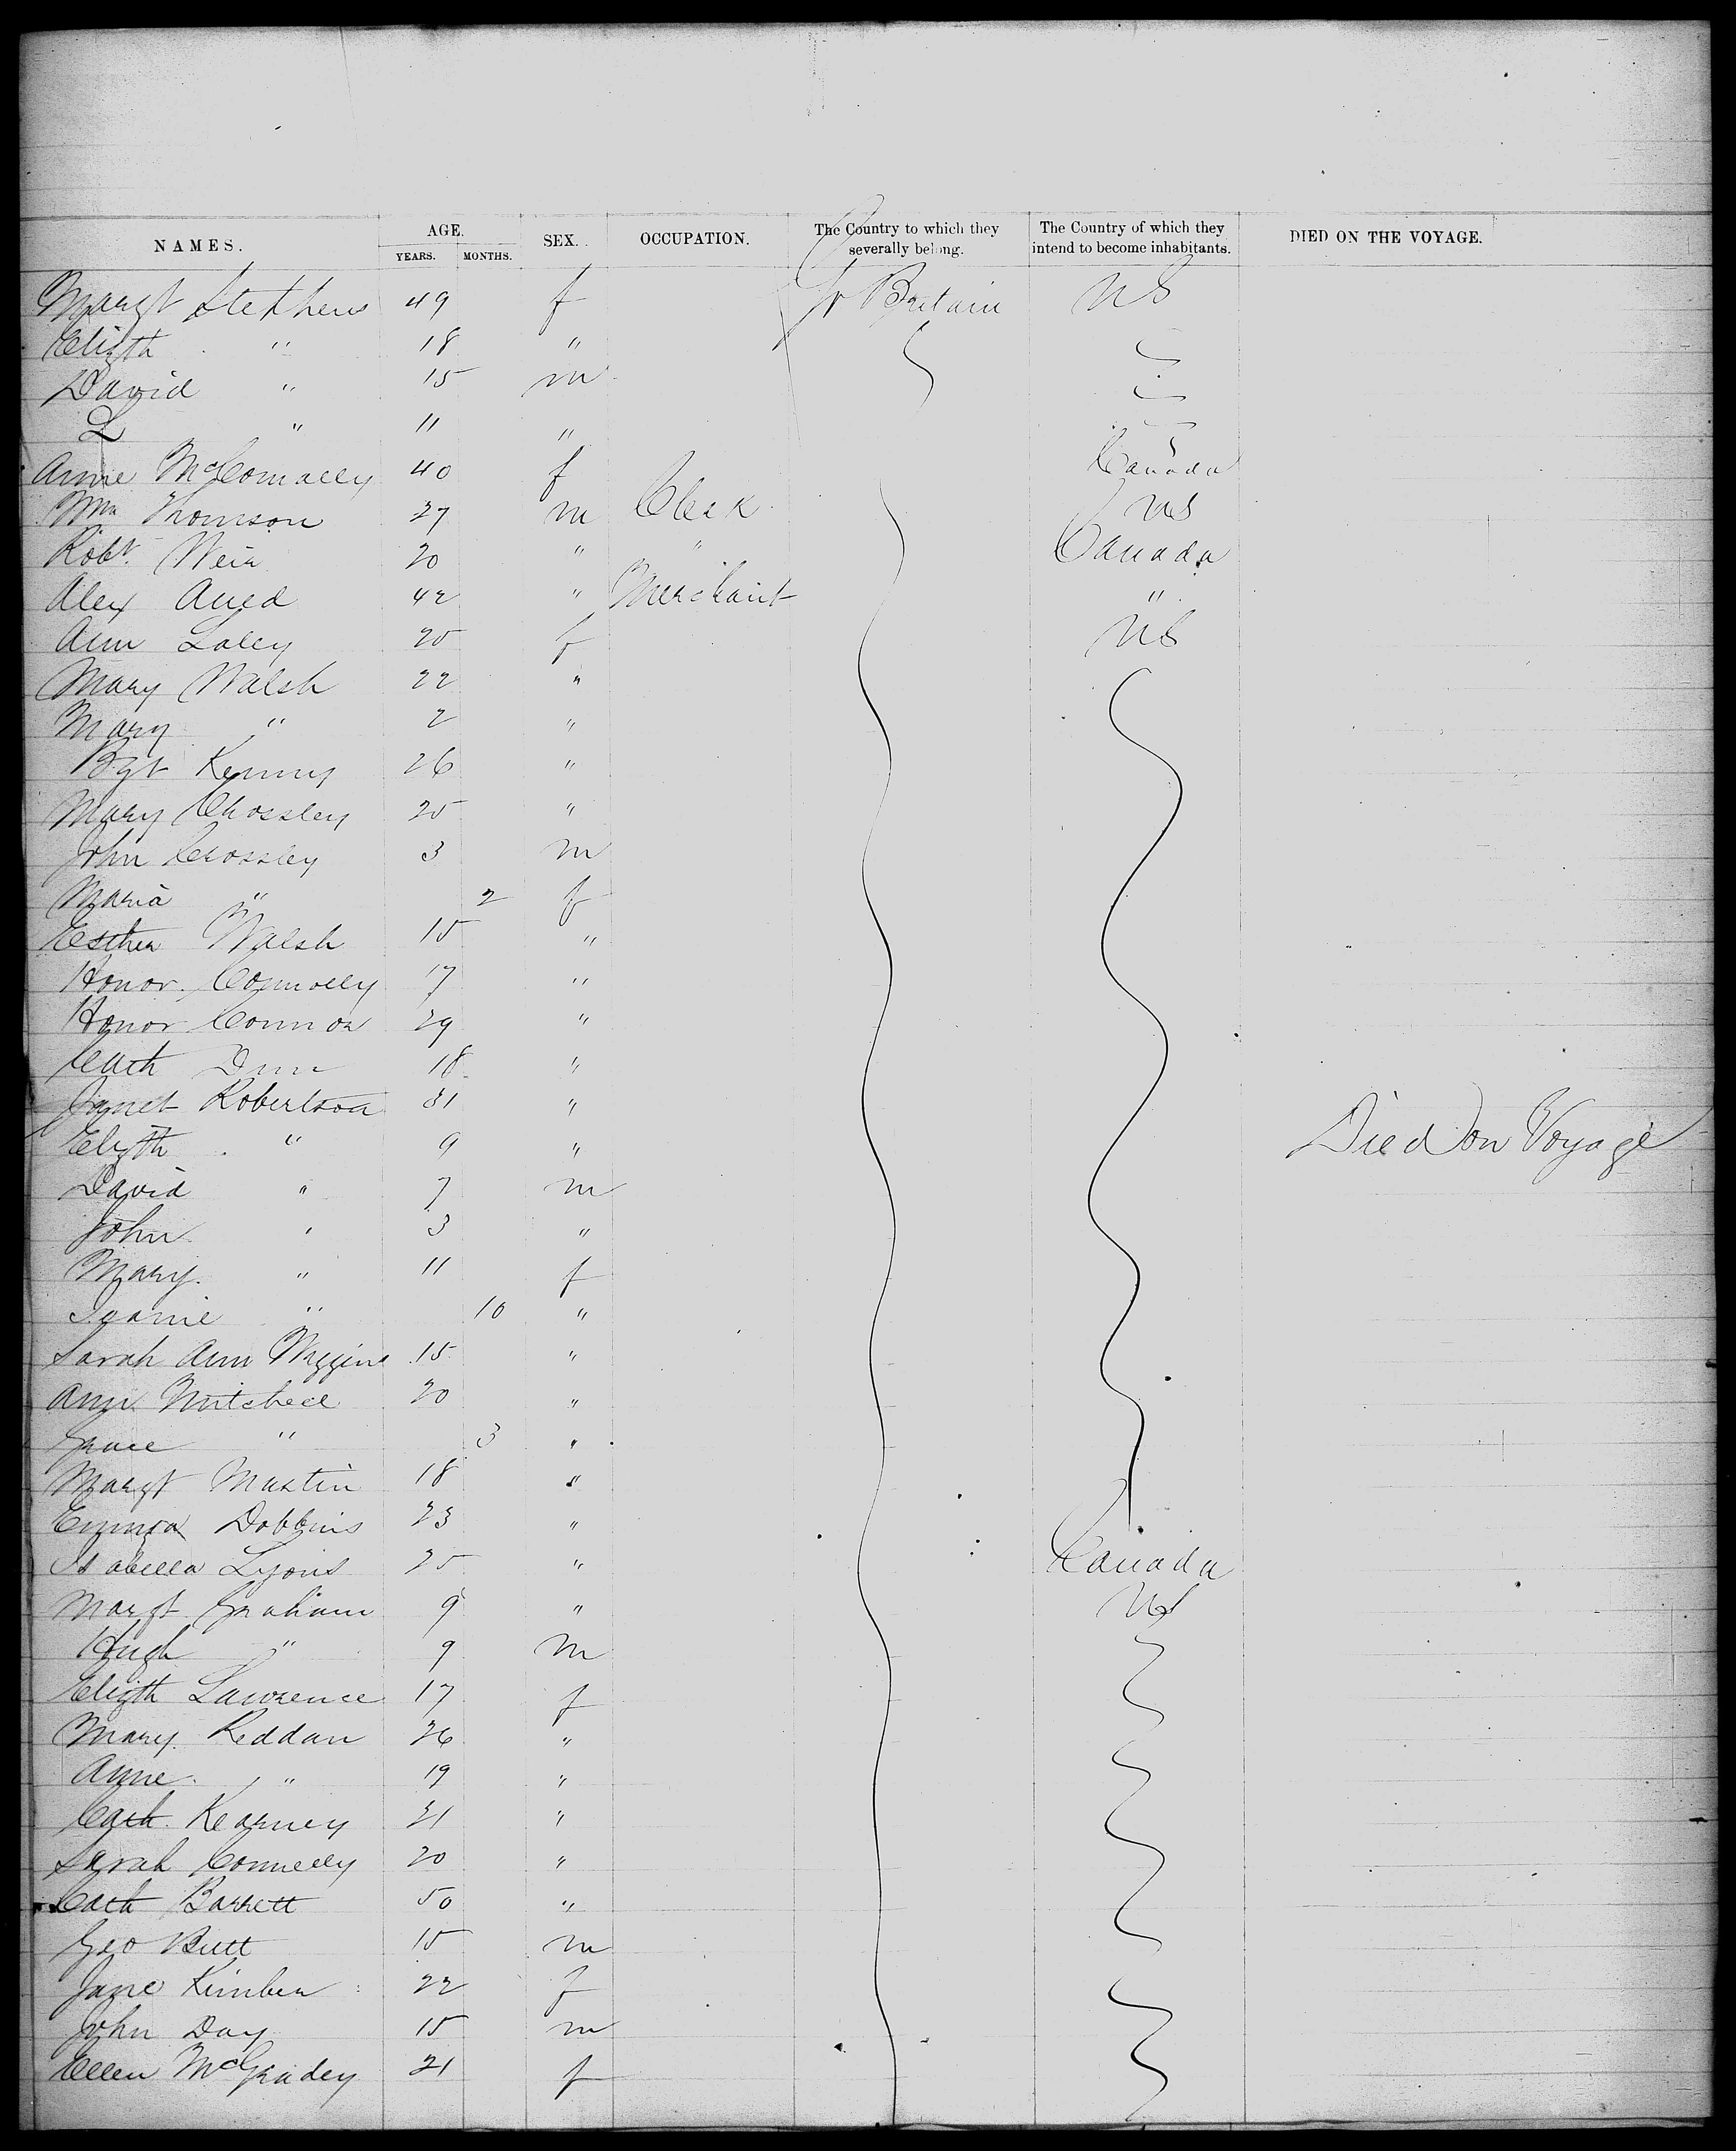 NAMES. AGE. SEX. OCCUPATION. The Country to which they severally belong. The Country of which they intend to become inhabitants. DIED ON THE VOYAGE.
YEARS. MONTHS.
Margt Stephens 49 f Gr Britain US
Elizth " 18 "
David " 15 m
L " 11 "
Annie McConnolly 40 f Canada
Wm Thomson 27 m Clerk US
Robt. Weir 20 " " Canada
Alex Auld 42 " Merchant "
Ann Laley 20 f US
Mary Walsh 22 "
Mary " 2 "
Bgt Kenny 26 "
Mary Crossley 25 "
John Crossley 3 m
Maria " 2 f
Esther Walsh 15 "
Honor. Connolly 17 "
Honor Connor 29 "
Cath Dunn 18 "
Janet Robertson 31 "
Elizth " 9 " Died on Voyage
David " 7 m
John " 3 "
Mary. " 11 f
Jeanie " 10 "
Sarah Ann Wiggins 15 "
Ann Mitchell 20 "
Grace " 3 "
Margt Martin 18 "
Emma Dobbins 23 "
Isabella Lyons 25 " Canada
Margt Graham 9 " US
Hugh " 9 m
Elizth Lawrence 17 f
Mary. Reddan 26 "
Anne. " 19 "
Cath. Kearney 21 "
Sarah Connelly 20 "
Cath Barrett 50 "
Geo Butt 15 m
Jane Kimber 22 f
John Day 15 m
Ellen McGradey 21 f